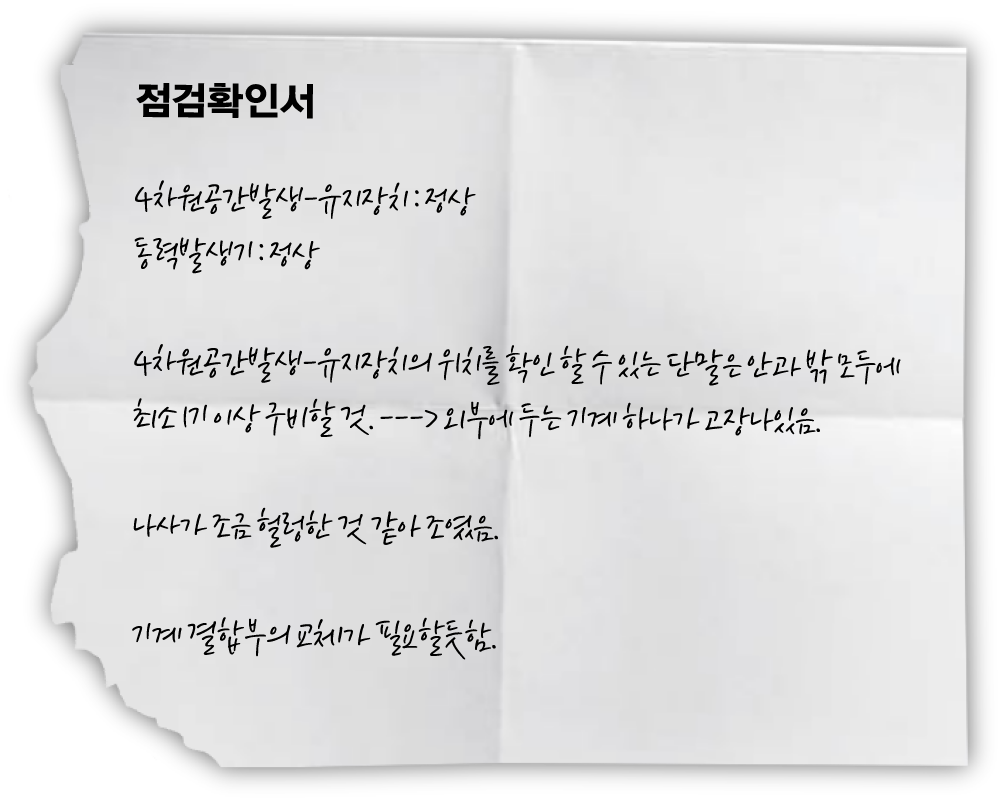 점검확인서
4차원공간발생-유지장치:정상
동력발생기:정상
4차원공간발생-유지장치의 위치를 확인 할 수 있는 단말은 안과 밖 모두에
최소1기 이상 구비할 것. ---> 외부에 두는 기계 하나가 고장나있음.
나사가 조금 헐렁한 것 같아 조였음.
기계 결합부의 교체가 필요할듯함.